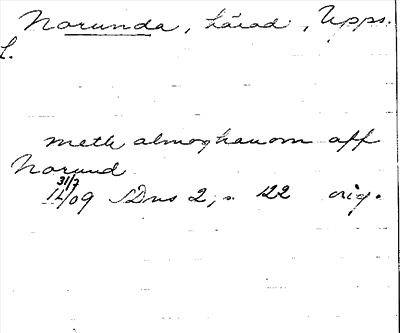 Norunda, härad, Upps.
l.
meth almoghanom aff
Norund
31/7
1409 SDns 2, s. 122 orig.